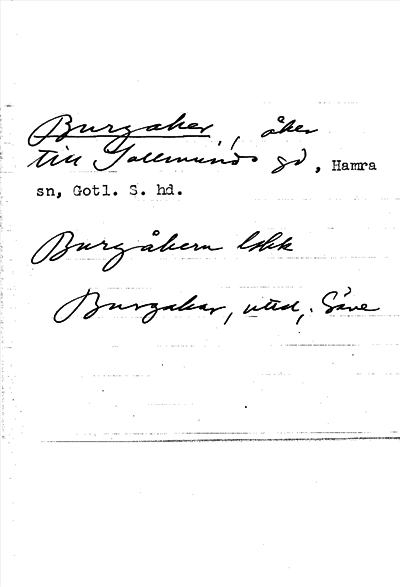 Burgaker, åker
till Sallmunds gd, Hamra
sn, Gotl. S. hd.
Burgåkern lskk
Burgakar, uttal, Säve